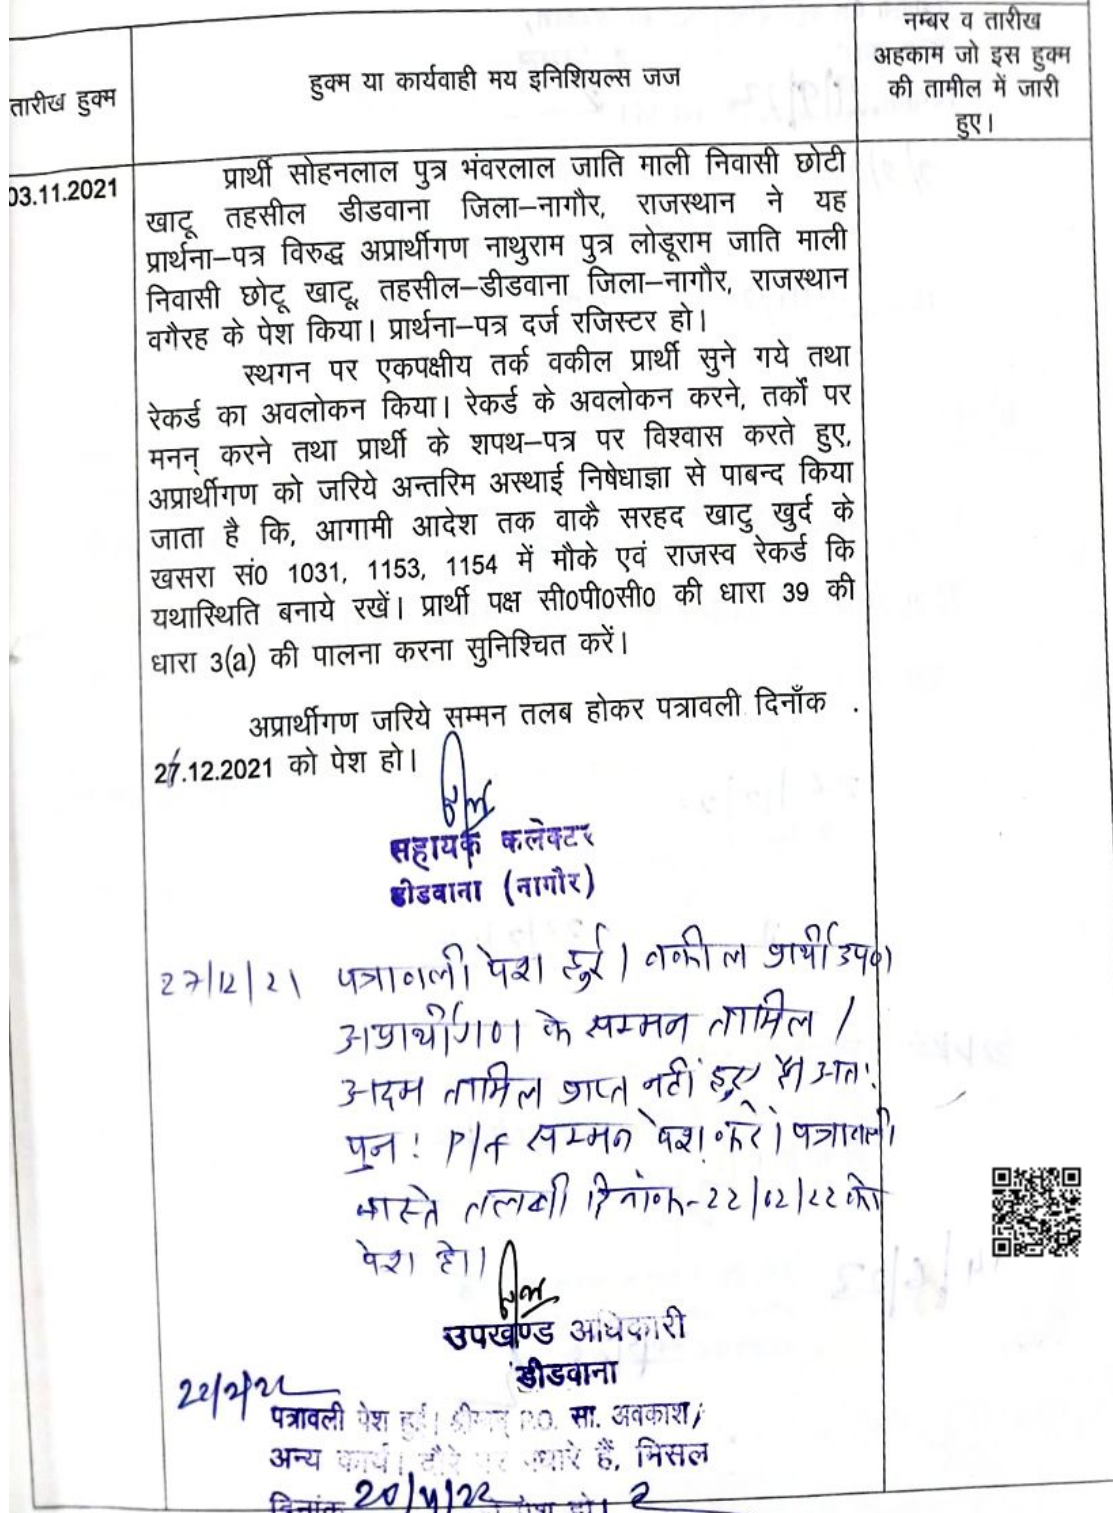 तारीख हुक्म
हुक्म या कार्यवाही मय इनिशियल्स जज
नम्बर व तारीख
अहकाम जो इस हुक्म
की तामील में जारी
हुए।
03.11.2021
प्रार्थी सोहनलाल पुत्र भंवरलाल जाति माली निवासी छोटी
खाटू तहसील डीडवाना जिला–नागौर, राजस्थान ने यह
प्रार्थना–पत्र विरुद्ध अप्रार्थीगण नाथुराम पुत्र लोडूराम जाति माली
निवासी छोटू खाटू, तहसील–डीडवाना जिला–नागौर, राजस्थान
वगैरह के पेश किया। प्रार्थना–पत्र दर्ज रजिस्टर हो।
स्थगन पर एकपक्षीय तर्क वकील प्रार्थी सुने गये तथा
रेकर्ड का अवलोकन किया। रेकर्ड के अवलोकन करने, तर्को पर
मनन् करने तथा प्रार्थी के शपथ–पत्र पर विश्वास करते हुए,
अप्रार्थीगण को जरिये अन्तरिम अस्थाई निषेधाज्ञा से पाबन्द किया
जाता है कि, आगामी आदेश तक वाकै सरहद खाटु खुर्द के
खसरा सं0 1031, 1153, 1154 में मौके एवं राजस्व रेकर्ड कि
यथास्थिति बनाये रखें। प्रार्थी पक्ष सी0पी0सी0 की धारा 39 की
धारा 3(a) की पालना करना सुनिश्चित करें।
अप्रार्थीगण जरिये सम्मन तलब होकर पत्रावली दिनाँक .
27.12.2021 को पेश हो।
सहायक कलेक्टर
डीडवाना (नागौर)
27/12/21 पत्रावली पेश हुई। वकील प्रार्थी उप०।
अप्रार्थीगण के सम्मन तामिल /
अदम तामिल प्राप्त नहीं हुए है। अतः
पुनः P/f सम्मन पेश करें। पत्रावली
वास्ते तलबी दिनांक-22/02/22 को
पेश हो।
उपखण्ड अधिकारी
डीडवाना
22/2/22
पत्रावली पेश हुई। श्रीमान् P.O. सा. अवकाश/
अन्य कार्य। दौरे पर पधारे हैं, मिसल
दिनांक 20/4/22 पेश हो।